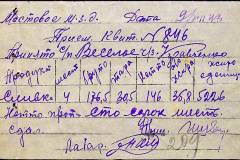 Мостовое м.з.д. Дата 9/VII 43
Прием. Квит. № 846
Принято с/п Веселое ч/з Кравченко
Продукт мест брутто тара нетто % жира жиро единиц
Сливк. 4 176,5 30,5 146 35,8 5226
Нетто проп. сто сорок шесть
сдал: Прин.
Лабор.